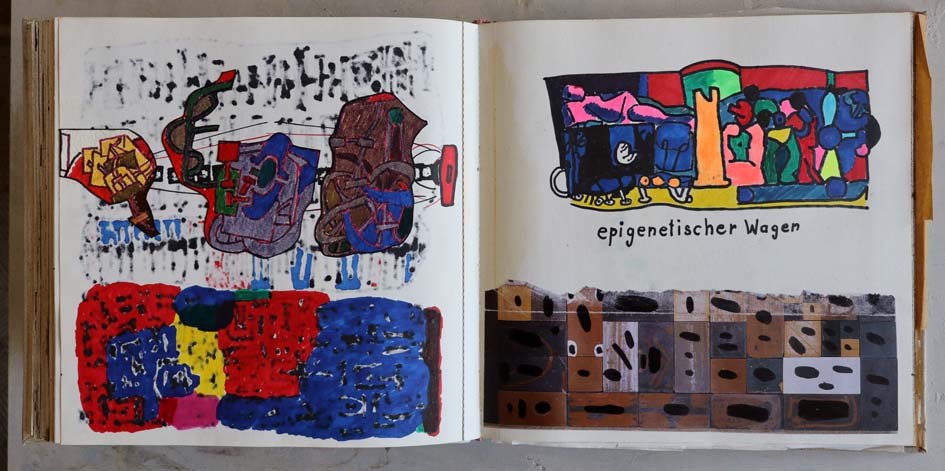 epigenetischer Wagen